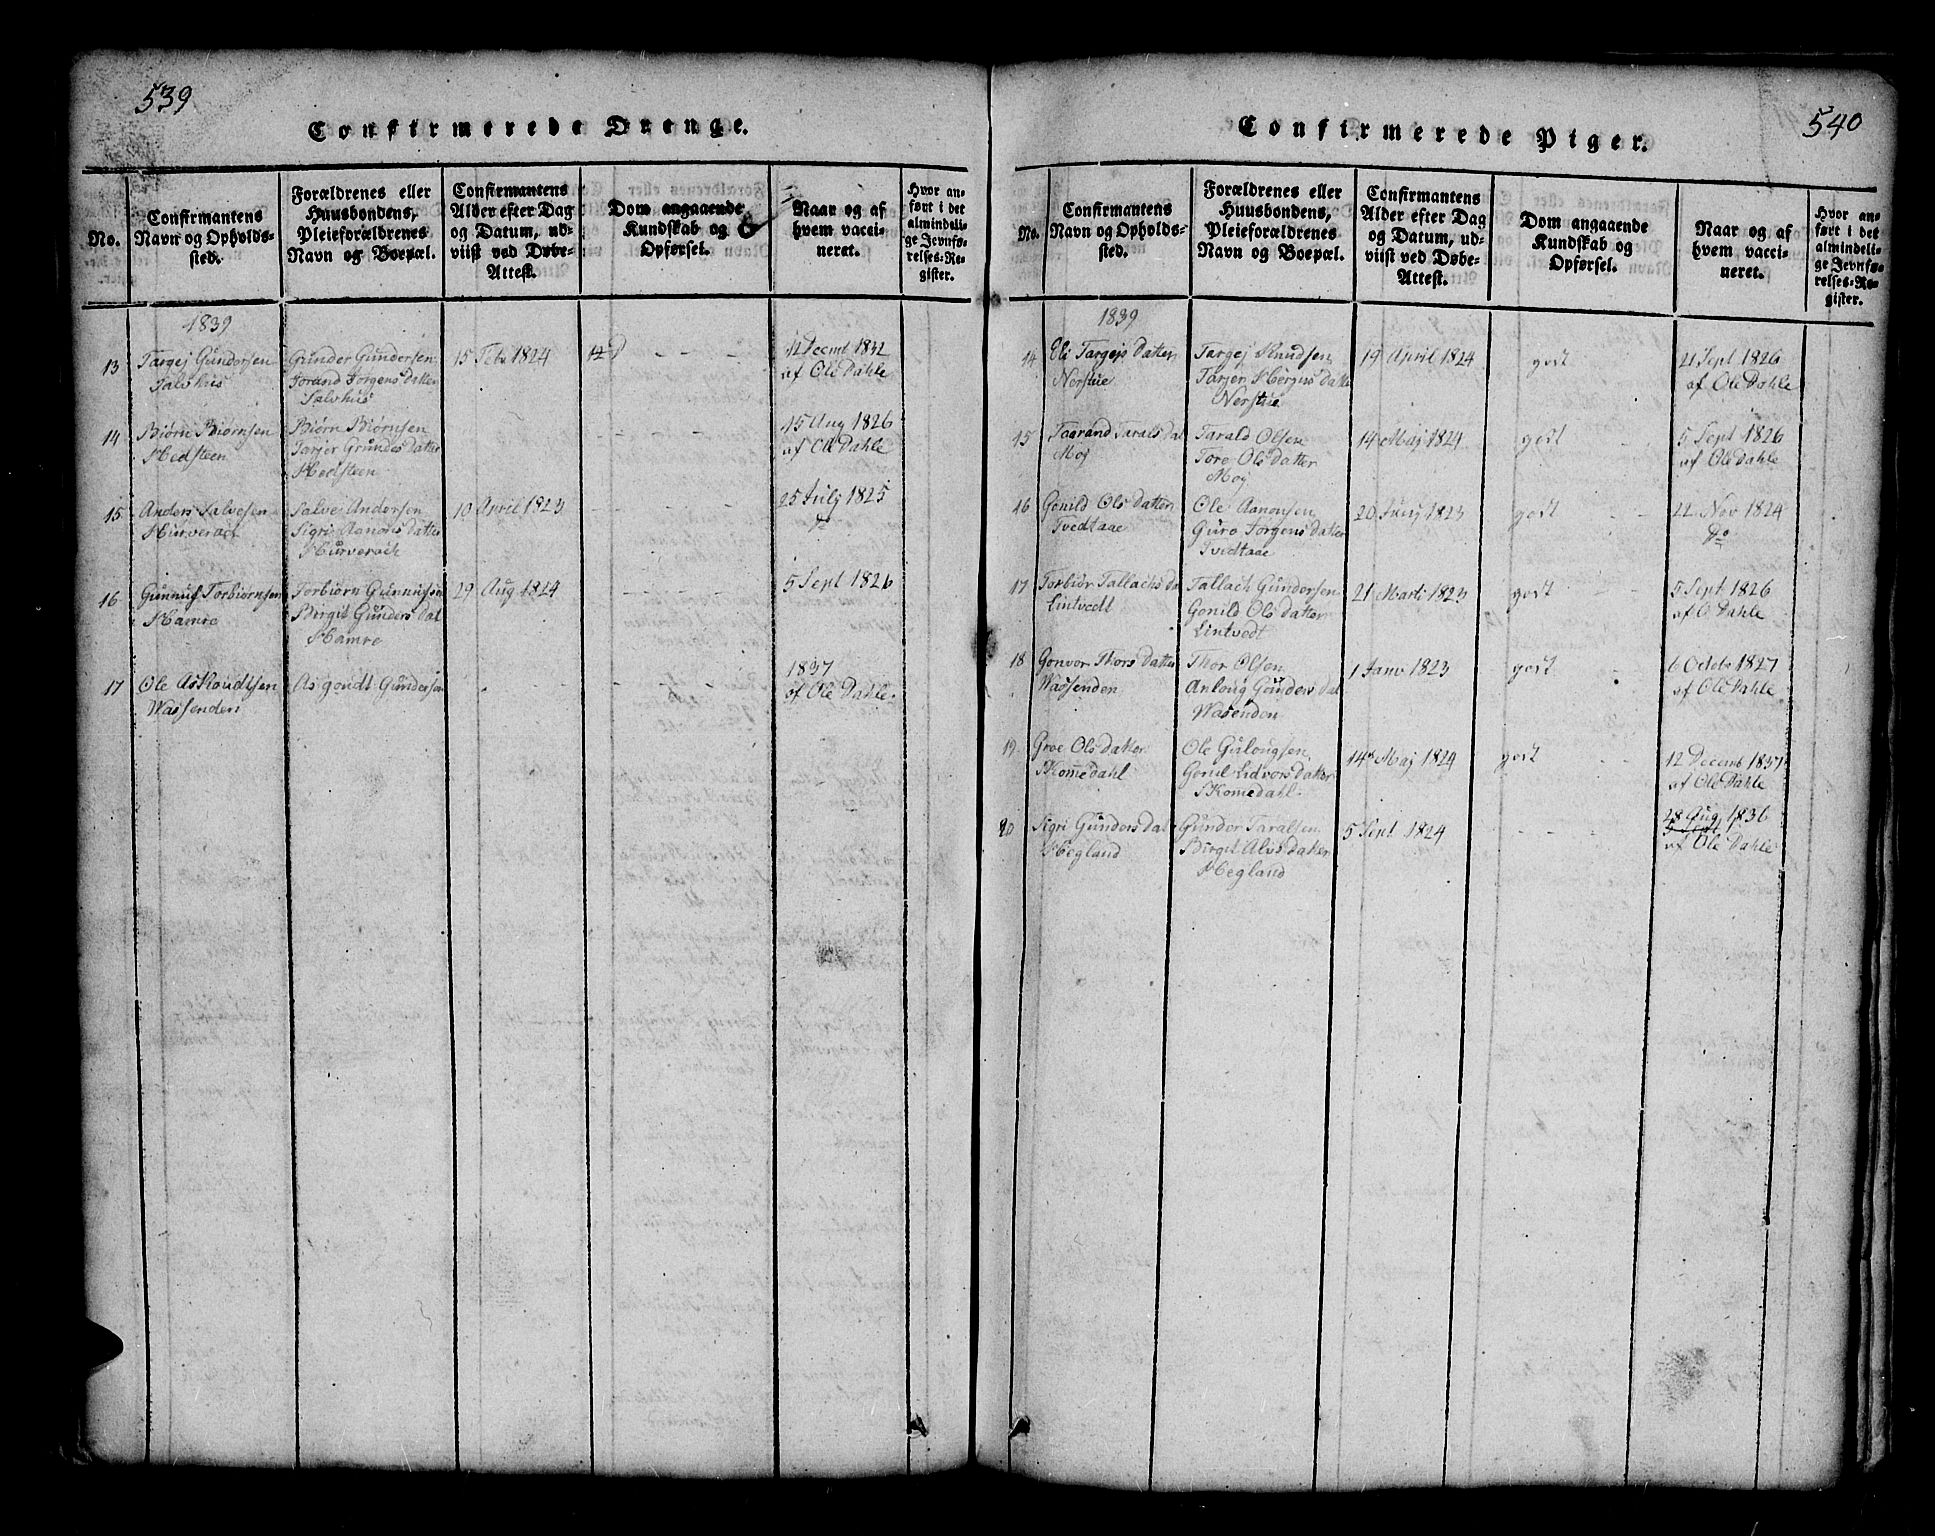 539
Confirmerede Drenge.
No.
Confirmantens
Navn og Opholds-
sted.
Forældrenes eller
Huusbondens,
Pleieforældrenes
Navn og Boepæl.
Confirmantens
Alder efter Dag
og Datum, ud-
viist ved Døbe-
Attest.
Dom angaaende
Kundskab og
Opførsel.
Naar og af
hvem vacci-
neret.
Hvor an-
ført i det
almindeli-
ge Jevnfø-
relses-Re-
gister.
1839
13
Targej Gundersen
Salvhus
Gunder Gundersen
Torand Jorgens datter
Salvhus
15 Feb 1824
12 Decemb 1832
af Ole Dahle
14
Biørn Biørnsen
Hedsteen
Biørn Biørnsen
Tarjer Grundes datter
Hedsteen
15 Aug 1826
af Ole Dahle
15
Anders Salvesen
Hurverach
Salvej Andersen
Sigri Aanons datter
Hurverach
10 April 1823
25 July 1825
Do
16
Gunnuf Torbiørnsen
Hamre
Torbiørn Gunnufsen
Birgit Gunders dat
Hamre
29 Aug 1824
5 Sept 1826
17
Ole Askoudtsen
Wassenden
Asgoudt Gundersen
1837
af Ole Dahle
540
Confirmerede Piger.
No.
Confirmantens
Navn og Opholds-
sted.
Forældrenes eller
Huusbondens,
Pleieforældrenes
Navn og Boepæl.
Confirmantens
Alder efter Dag
og Datum, ud-
viist ved Døbe-
Attest.
Dom angaaende
Kundskab og
Opførsel.
Naar og af
hvem vacci-
neret.
Hvor an-
ført i det
almindeli-
ge Jevnfø-
relses-Re-
gister.
1839
14
Eli Targejs datter
Nerstue
Targej Knudsen
Tarjer Herjus datter
Nerstue
19 April 1824
godt
21 Sept 1826
af Ole Dahle
15
Taarand Taralsdat
Moj
Tarald Olsen
Tore Olsdatter
Moj
14 Maj 1824
godt
5 Sept 1826
af Ole Dahle
16
Gonild Olsdatter
Tvedtaae
Ole Aanonsen
Guro Jorgensdatter
Tvedtaae
20 Junj 1823
godt
22 Nov 1824
Do
17
Torbiør Tallachsdat
Lintvedt
Tallach Gundersen
Gonild Olsdatter
Lintvedt
21 Marti 1823
godt
5 Sept 1826
af O Dahle
18
Gonvor Thorsdatter
Wassenden
Thor Olsen
Anloug Gunders dat
Wasenden
1 Janv 1823
godt
6 Octobr 1827
af Ole Dahle
19
Groe Olsdatter
Skomedahl
Ole Gulougsen
Gonil Lidvors datter
Skomedahl
14 Maj 1824
godt
12 Decemb 1837
af Ole Dahle
20
Sigri Gunders dat
Hegland
Gunder Taralsen
Birgit Alvsdatter
Hegland
5 Sept 1824
28 Aug 1836
af Ole Dahle